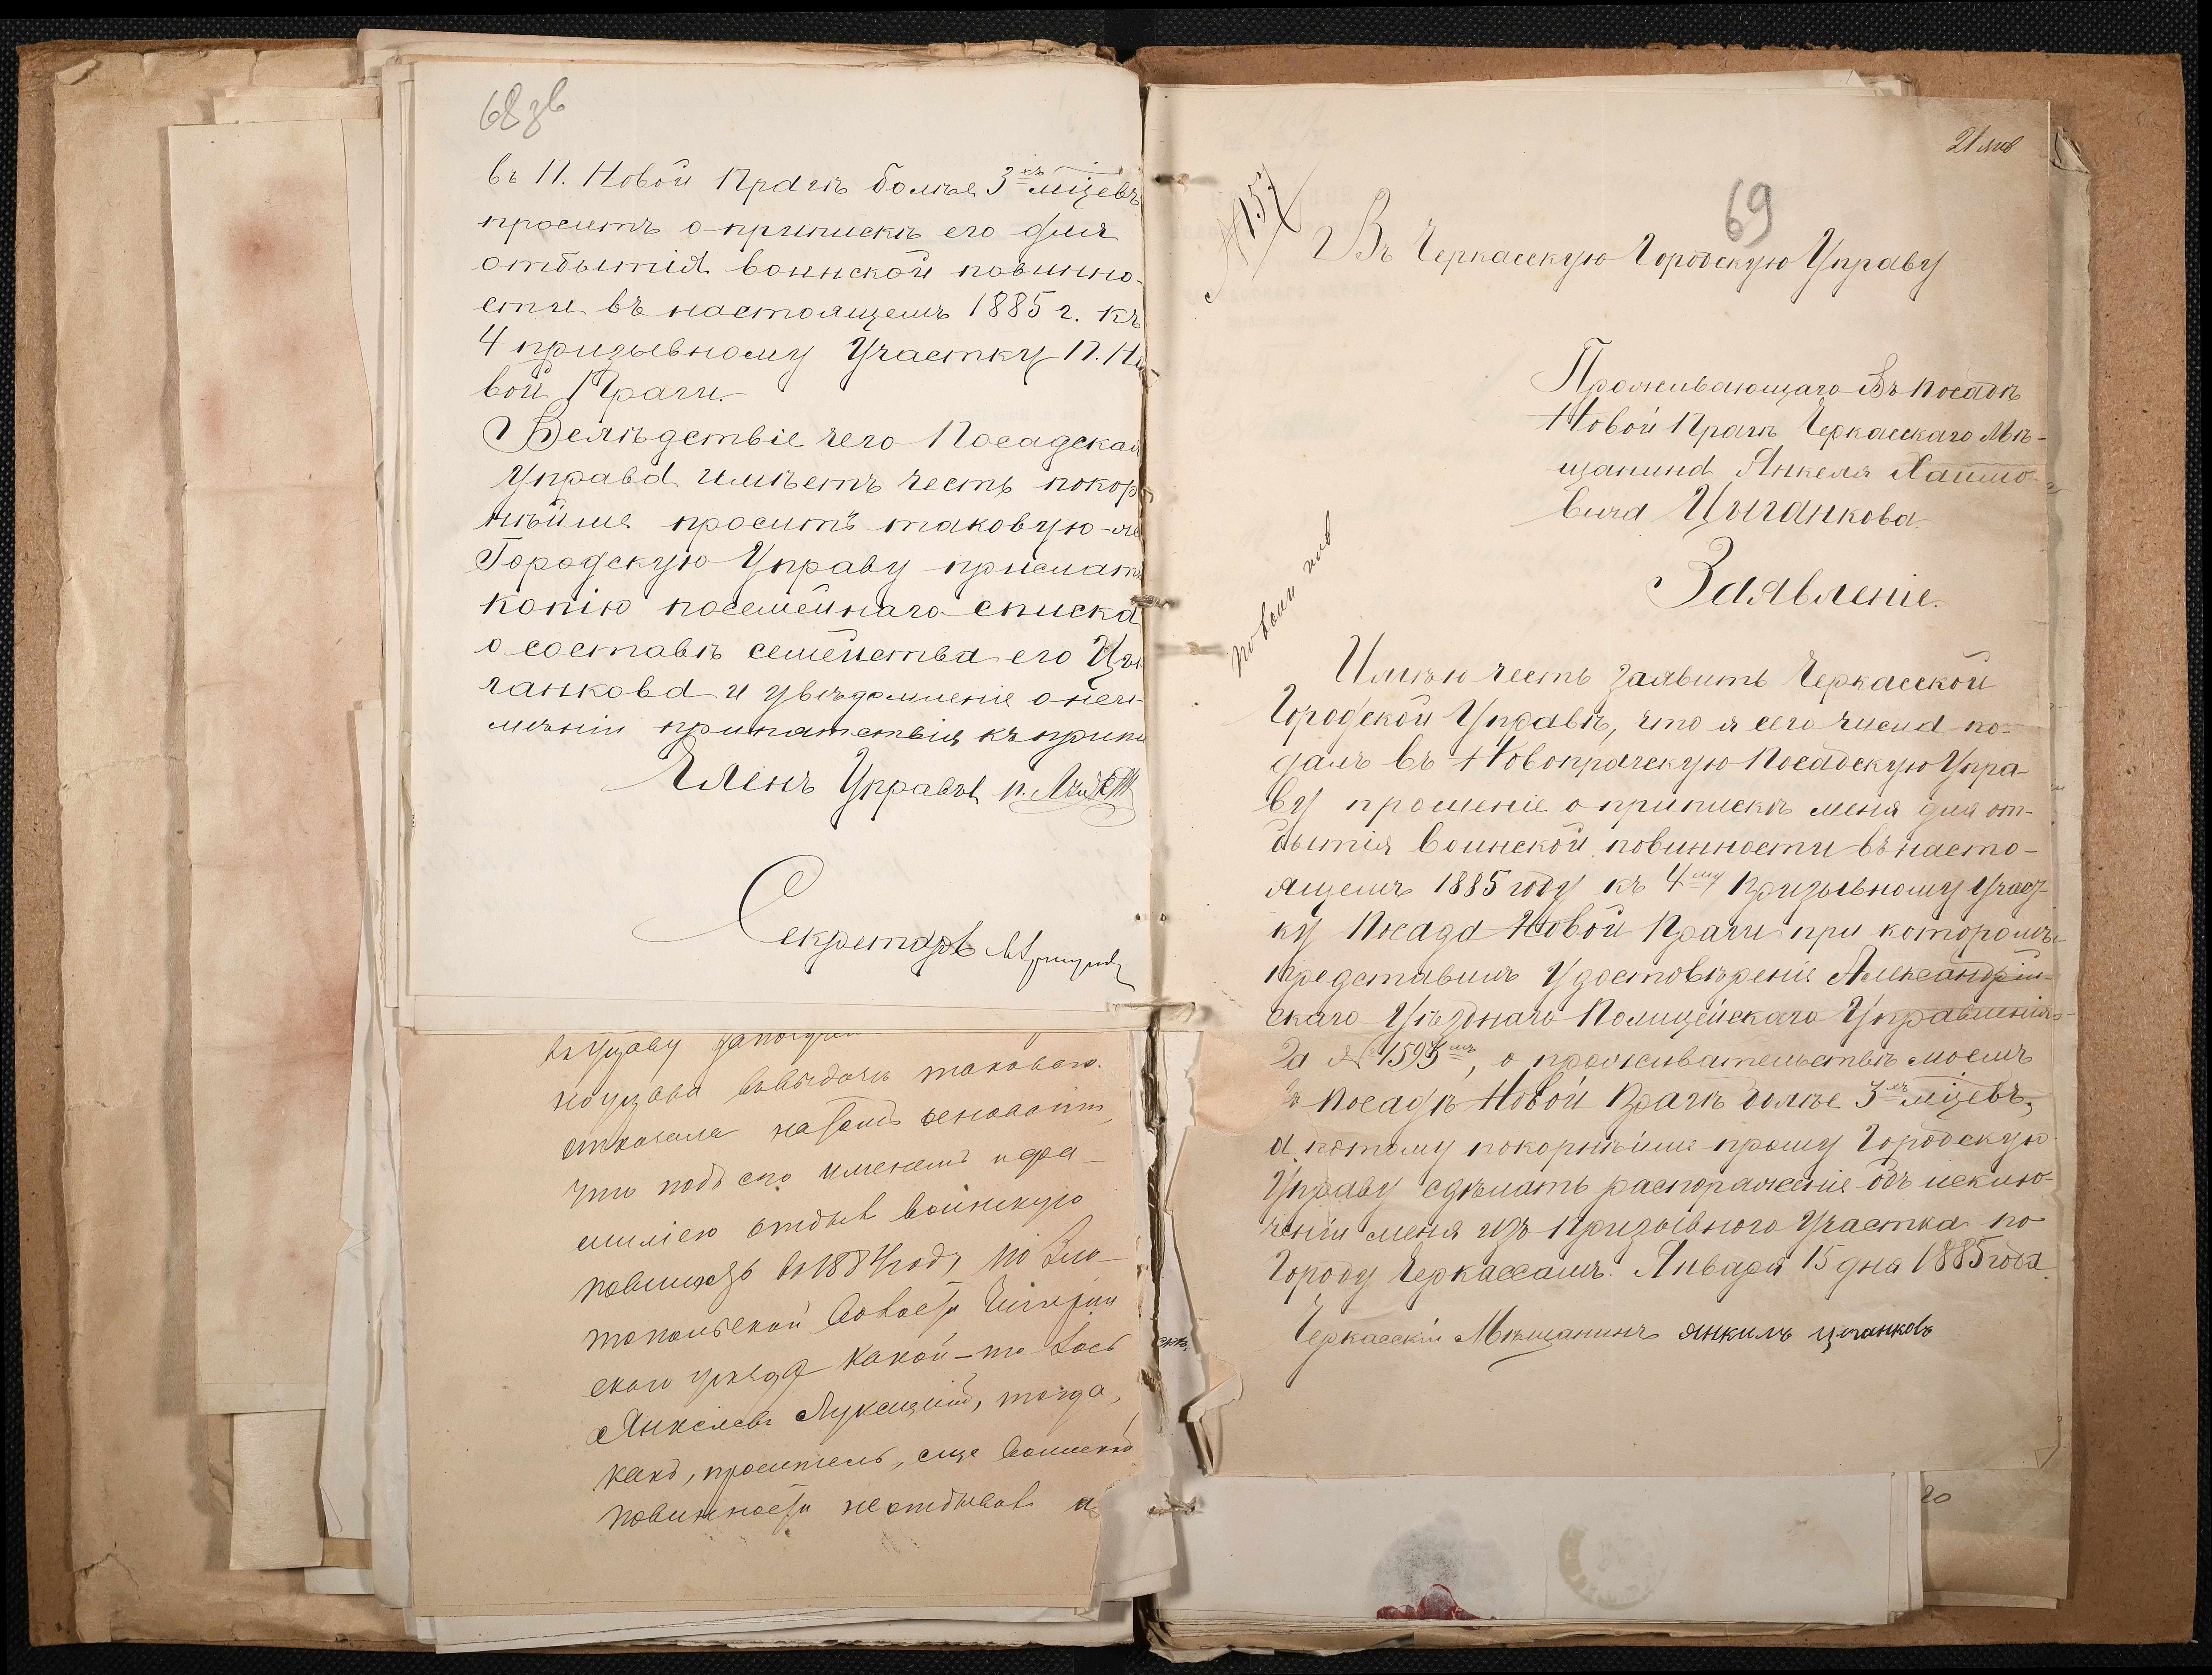 68 зв
въ П. Новой Прагѣ болѣе 3хъ мѣцевъ
проситъ о припискѣ его для
отбытія воинской повинно-
сти въ настоящемъ 1885 г. къ
4 призывному Участку П. Но
вой Праги.
Вслѣдствіе чего Посадская
Управа имѣетъ честь покор
нѣйше просить таковую-же
Городскую Управу прислать
копію посемейнаго списка
о составѣ семейства его Цы
ганкова и увѣдомленіе о неи-
мѣніи припятствія къ припи
Членъ Управы
Секретарь
въ Управу
выдачѣ таковаго.
отказала на томъ основаніи,
что подъ его именемъ и фа-
миліею отбылъ воинскую
повинность въ 1884 году, по Зла-
топольской волости Чигирин
скаго уѣзда какой-то Іось
Янкелевъ Лукацкій, тогда,
какъ, проситель, еще воинской
повинности не отбывалъ и
21 янв
69
№ 157
Въ Черкасскую Городскую Управу
Проживающаго въ посадѣ
Новой Прагѣ Черкасскаго Мѣ-
щанина Янкеля Хаимо-
вича Цыганкова.
Заявленіе.
по воин пов
Имѣю честь заявить Черкасской
Городской Управѣ, что я сего числа по-
далъ въ Новопражскую Посадскую Упра-
ву прошеніе о припискѣ меня для от-
бытія воинской повинности въ насто-
ящемъ 1885 году къ 4му Призывному Учас-
ку Посада Новой Праги при которомъ
представилъ Удостовѣреніе Александрій-
скаго Уѣзднаго Полицейскаго Управленія
за № 1595мъ, о проживательствѣ моемъ
въ посадѣ Новой Прагѣ болѣе 3хъ мѣцевъ,
а потому покорнѣйше прошу Городскую
Управу сдѣлать распоряженіе объ исклю-
ченіи меня изъ Призывного Участка по
Городу Черкассамъ. Января 15 дня 1885 года
Черкасскій Мѣщанинъ Янкиль Цыганковъ